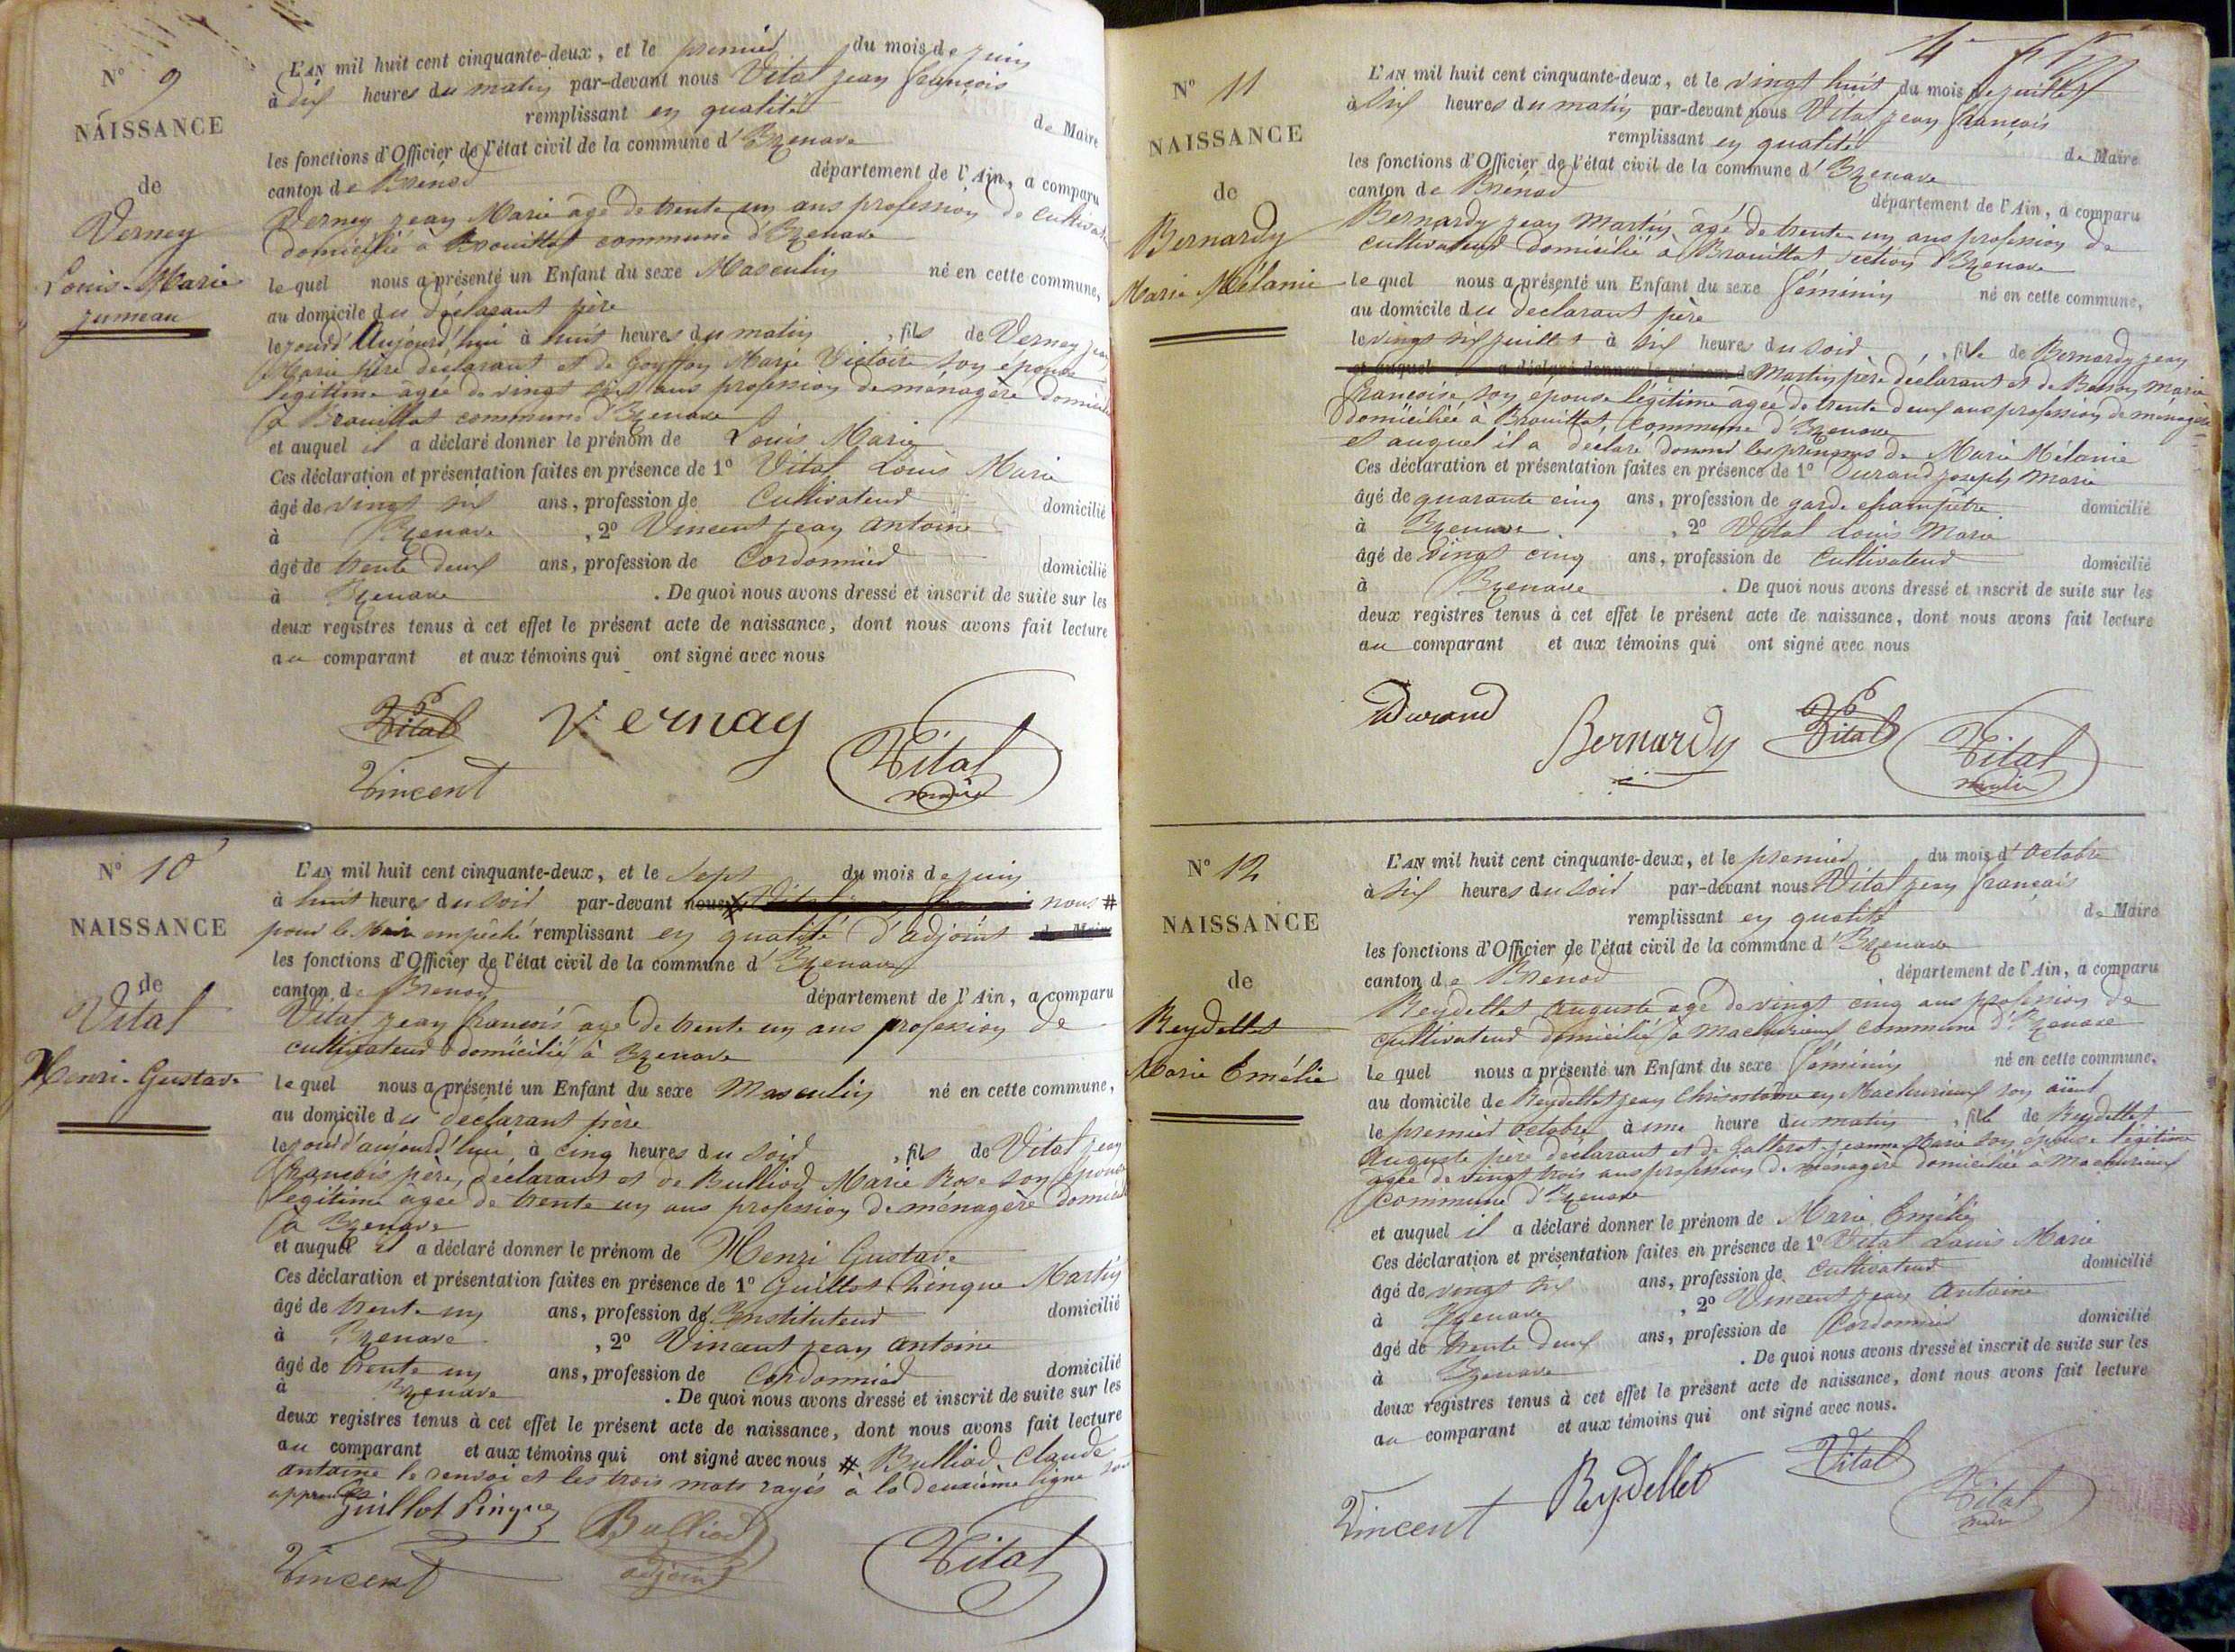 N° 9
NAISSANCE
de
Verney
Louis-Marie
jumeau
L'AN mil huit cent cinquante-deux, et le premier du mois de juin
à dix heures du matin par-devant nous Vital jean françois
remplissant en qualité de Maire
les fonctions d'Officier de l'état civil de la commune d'Izenave
canton de Brénod département de l'Ain, a comparu
Verney jean Marie âgé de trente un ans profession de cultivat
domicilié à Brouillat commune d'Izenave
lequel nous a présenté un Enfant du sexe Masculin né en cette commune,
au domicile du déclarant père
le jour d'Aujourd'hui à huit heures du matin, fils de Verney jean
Marie père déclarant et de Gouffon Marie Victoire son épouse
légitime agée de vingt six ans profession de menagère domici
à Brouillat commune d'Izenave
et auquel il a déclaré donner le prénom de Louis Marie
Ces déclaration et présentation faites en présence de 1° Vital Louis Marie
âgé de vingt six ans, profession de Cultivateur domicilié
à Izenave, 2° Vincent jean antoine
âgé de trente deux ans, profession de Cordonnier domicilié
à Izenave. De quoi nous avons dressé et inscrit de suite sur les
deux registres tenus à cet effet le présent acte de naissance, dont nous avons fait lecture
au comparant et aux témoins qui ont signé avec nous
Vital Vernay
Vital
maire
Vincent
N° 10
NAISSANCE
de
Vital
Henri-Gustave
L'AN mil huit cent cinquante-deux, et le sept du mois de juin
à huit heures du soir par-devant nous nous #
pour le Maire empêché remplissant en qualité d'adjoint de Maire
les fonctions d'Officier de l'état civil de la commune d'Izenave
canton de Brenod département de l'Ain, a comparu
Vital jean françois âgé de trente un ans profession de
cultivateur domicilié à Izenave
lequel nous a présenté un Enfant du sexe Masculin né en cette commune,
au domicile du déclarant père
le jour d'aujourd'hui à cinq heures du soir, fils de Vital jean
françois père, déclarant et de Bulliod Marie Rose son épouse
légitime agée de trente un ans profession de ménagère domicili
à Izenave
et auquel il a déclaré donner le prénom de Henri Gustave
Ces déclaration et présentation faites en présence de 1° Guillot Pinque Martin
âgé de trente un ans, profession de Instituteur domicilié
à Izenave, 2° Vincent jean antoine
âgé de trente un ans, profession de Cordonnier domicilié
à Izenave. De quoi nous avons dressé et inscrit de suite sur les
deux registres tenus à cet effet le présent acte de naissance, dont nous avons fait lecture
au comparant et aux témoins qui ont signé avec nous # Bulliod Claude
antoine le renvoi et les trois mots rayés à la deuxième ligne son
approuvés
Guillot Pinque Bulliod
adjoint
Vital
Vincent
N° 11
NAISSANCE
de
Bernardy
Marie Mélanie
4
L'AN mil huit cent cinquante-deux, et le vingt huit du mois de juillet
à six heures du matin par-devant nous Vital jean françois
remplissant en qualité de Maire
les fonctions d'Officier de l'état civil de la commune d'Izenave
canton de Brénod département de l'Ain, a comparu
Bernardy jean Martin âgé de trente un ans profession de
cultivateur domicilié à Brouillat section d'Izenave
lequel nous a présenté un Enfant du sexe féminin né en cette commune,
au domicile du déclarant père
le vingt six juillet à six heures du soir, fille de Bernardy jean
et auquel a déclaré donner le prénom de Martin père déclarant et de Besson Marie
françoise son epouse légitime agée de trente deux ans profession de menagère
domiciliée à Brouillat, Commune d'Izenave
et auquel il a déclaré donner les prénoms de Marie Mélanie
Ces déclaration et présentation faites en présence de 1° Durand joseph Marie
âgé de quarante cinq ans, profession de garde champêtre domicilié
à Izenave, 2° Vital Louis Marie
âgé de vingt cinq ans, profession de Cultivateur domicilié
à Izenave. De quoi nous avons dressé et inscrit de suite sur les
deux registres tenus à cet effet le présent acte de naissance, dont nous avons fait lecture
au comparant et aux témoins qui ont signé avec nous
Durand Bernardy Vital Vital
maire
N° 12
NAISSANCE
de
Reydellet
Marie Emélie
L'AN mil huit cent cinquante-deux, et le premier du mois d'Octobre
à six heures du soir par-devant nous Vital jean françois
remplissant en qualité de Maire
les fonctions d'Officier de l'état civil de la commune d'Izenave
canton de Brenod département de l'Ain, a comparu
Reydellet Auguste agé de vingt cinq ans profession de
cultivateur domicilié à Machurieux commune d'Izenave
lequel nous a présenté un Enfant du sexe féminin né en cette commune,
au domicile de Reydellet jean Chrisostome en Machurieux son aïeul
le premier octobre à une heure du matin, fille de Reydellet
Auguste père déclarant et de Galterot jeanne Marie son épouse légitime
agée de vingt trois ans profession de ménagère domiciliée à Machurieux
Commune d'Izenave
et auquel il a déclaré donner le prénom de Marie Emélie
Ces déclaration et présentation faites en présence de 1° Vital Louis Marie
âgé de vingt six ans, profession de Cultivateur domicilié
à Izenave, 2° Vincent jean Antoine
âgé de trente deux ans, profession de Cordonnier domicilié
à Izenave. De quoi nous avons dressé et inscrit de suite sur les
deux registres tenus à cet effet le présent acte de naissance, dont nous avons fait lecture
au comparant et aux témoins qui ont signé avec nous.
Vincent Reydellet Vital Vital
maire